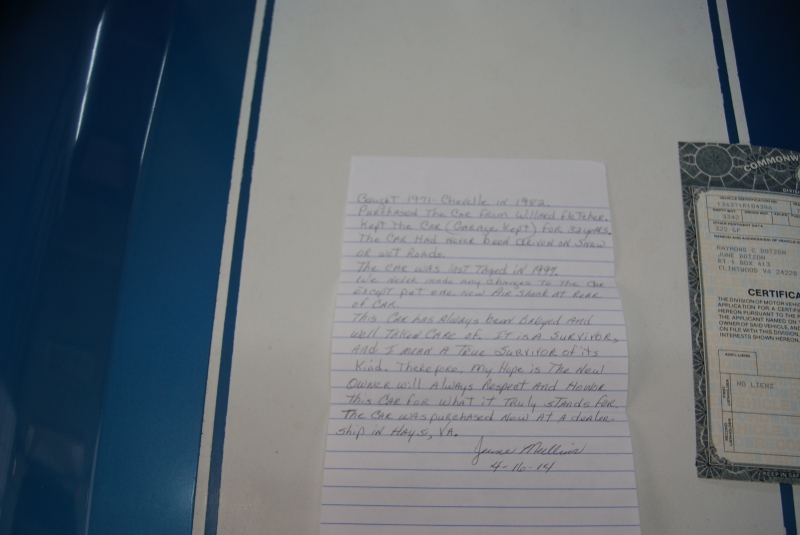 Bought 1971 Chevelle in 1982.
Purchased The Car From Willard Fletcher.
Kept The Car (Garage Kept) For 32 years.
The Car Had never been driven on Snow
or wet Roads.
The Car was last Taged in 1997.
We never made Any Changes To the Car
except put one new Air Shock at Rear
of Car.
This Car has Always been Babyed And
well Taken Care of. It is A Survivor,
And I mean A True Survivor of its
Kind. Therefore, My Hope is The New
Owner will Always Respect And Honor
This Car for what it Truly stands for.
The Car was purchased New At A dealer-
ship in Hays, VA.
June Mullins
4-16-14
COMMONW
RAYMOND C DOTSON
JUNE DOTSON
RT 1 BOX 413
CLINTWOOD VA 24228
CERTIFICA
THE DIVISION OF MOTOR VEHI
APPLICATION FOR A CERTIF
HEREON PURSUANT TO THE
THE APPLICANT NAMED ON
OWNER OF SAID VEHICLE, AN
ON FILE WITH THIS DIVISION
INTERESTS SHOWN HEREON.
NO LIENS
KEEP IN SAF